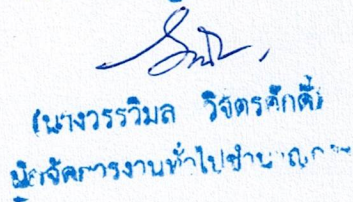 (นางวรรวิมล วิจิตรศักดิ์)
นักจัดการงานทั่วไปชำนาญการ